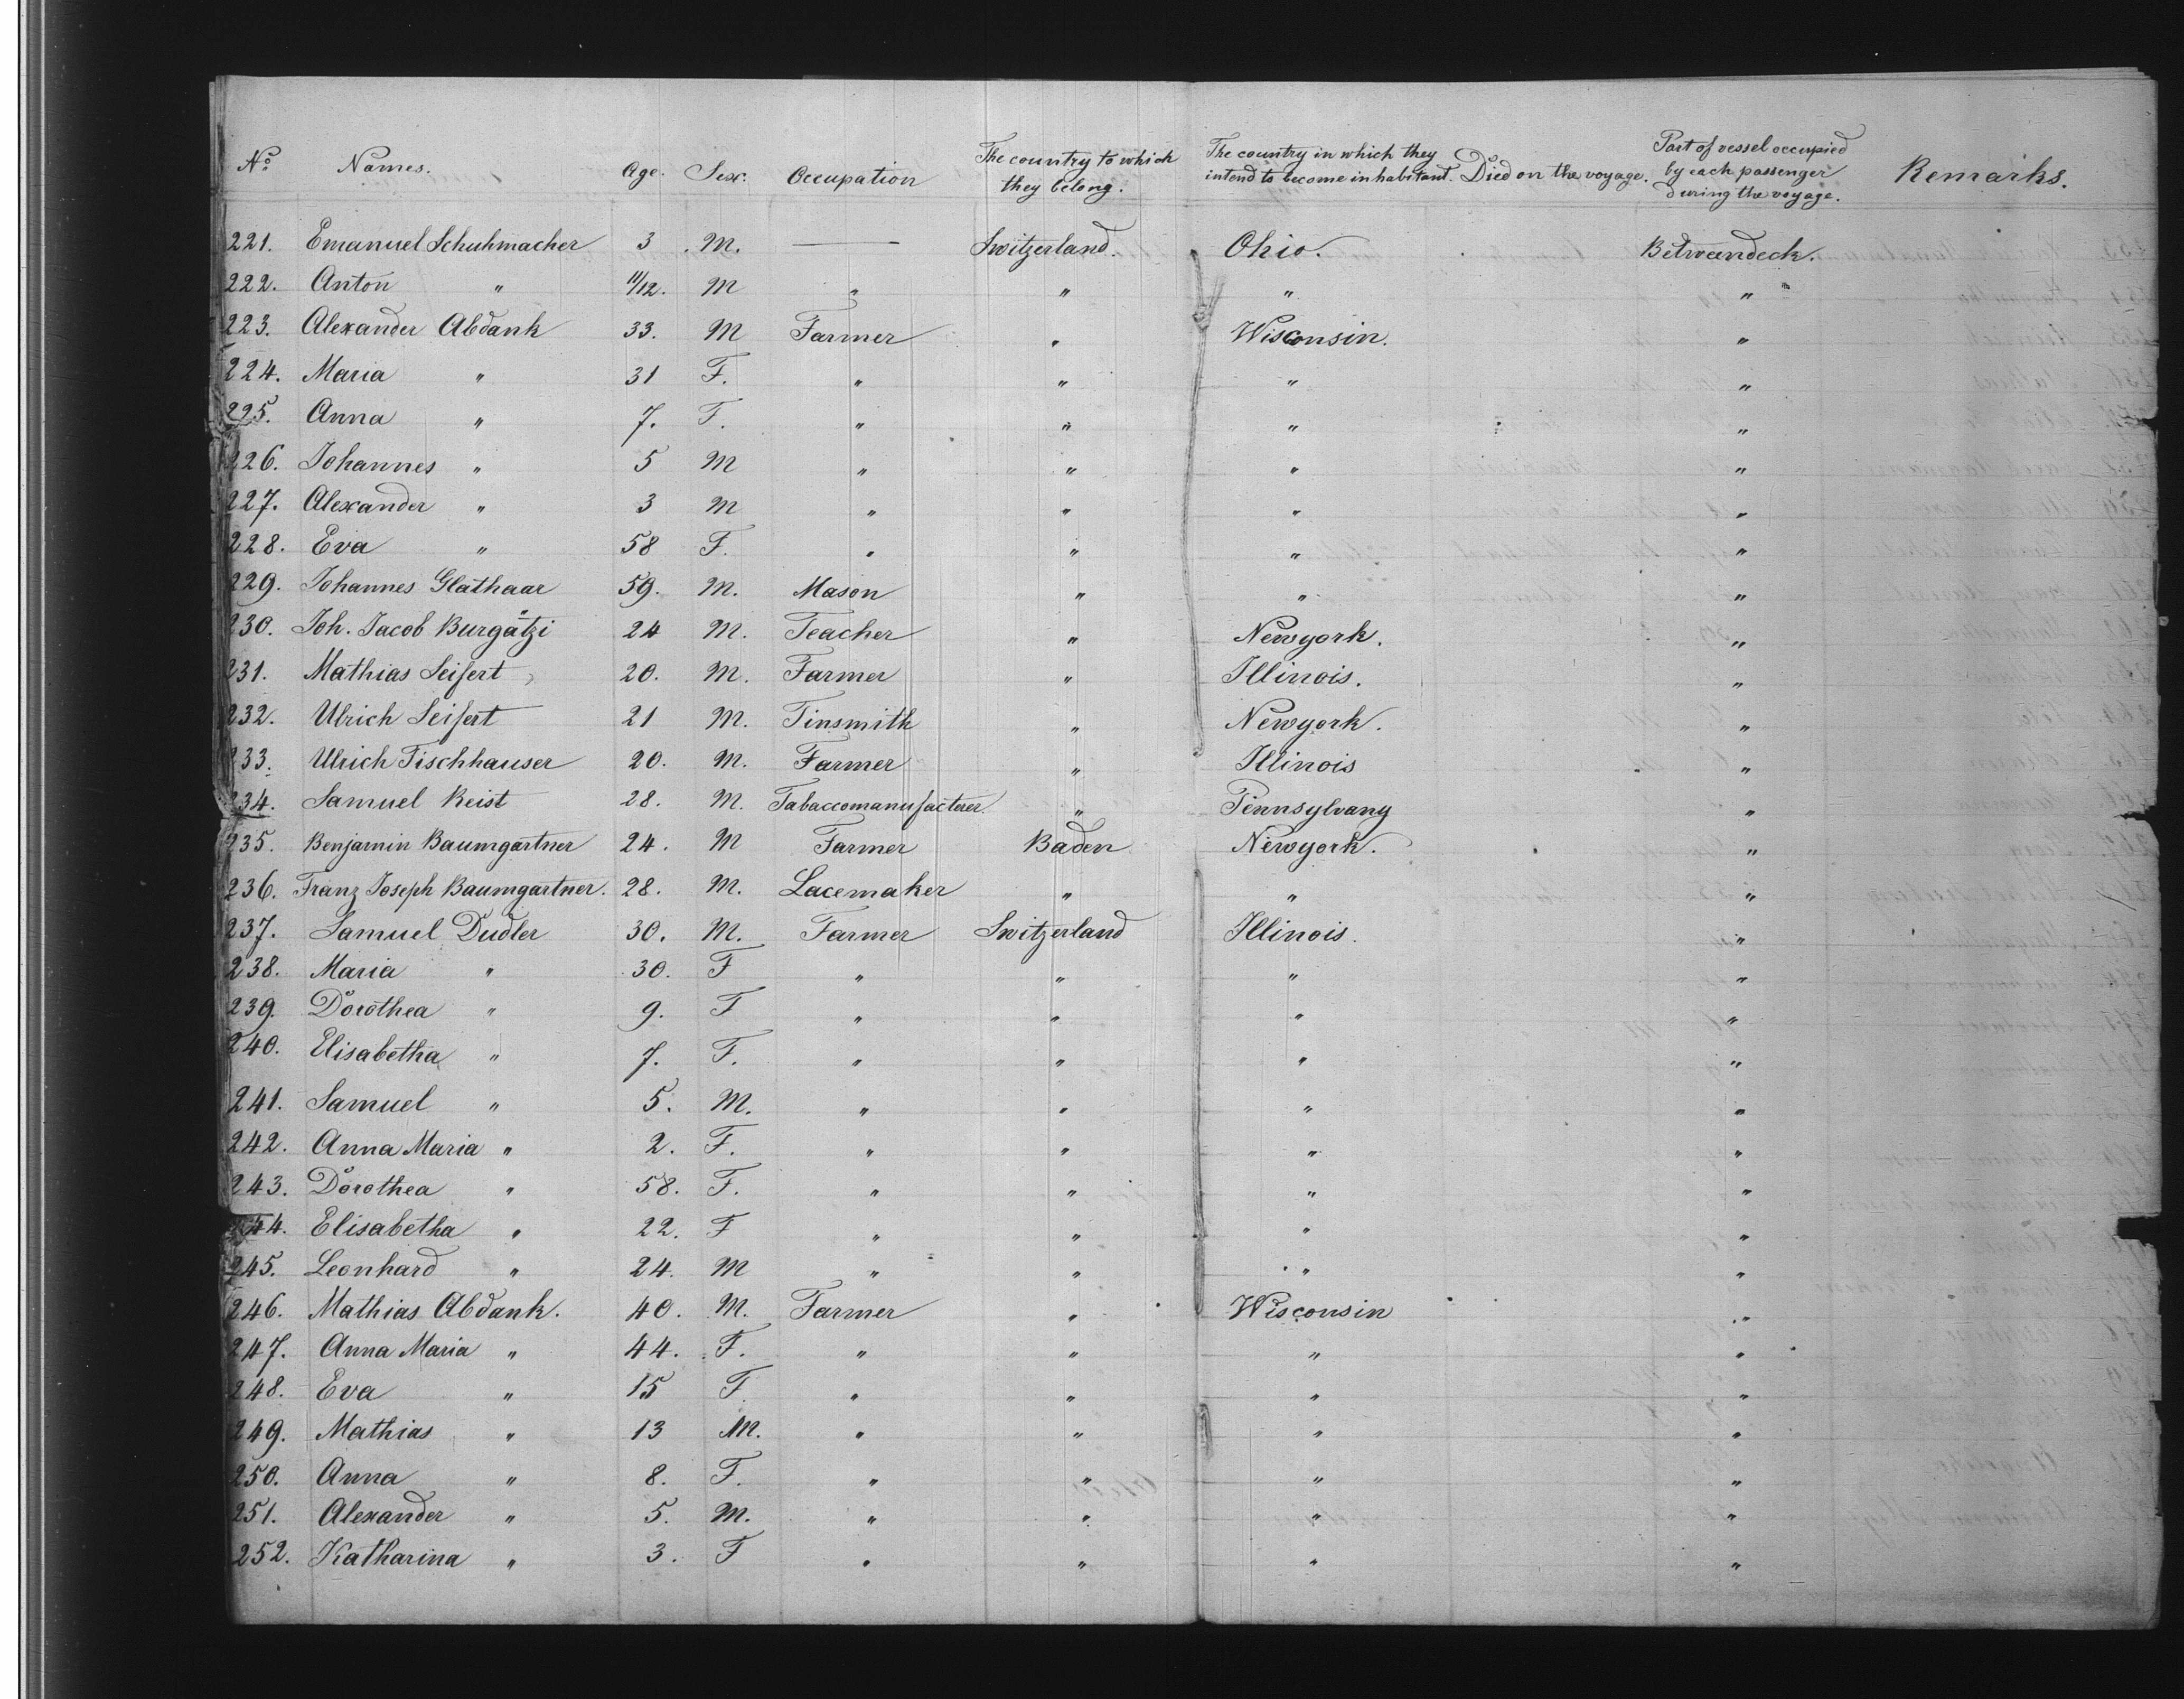 No. Names. Age. Sex. Occupation The country to which they belong. The country in which they intend to become inhabitant. Died on the voyage. Part of vessel occupied by each passenger during the voyage. Remarks.
221. Emanuel Schuhmacher 3 M. — Switzerland. Ohio. Betweendeck.
222. Anton " 11/12. M " " " "
223. Alexander Abdank 33. M Farmer " Wisconsin. "
224. Maria " 31 F. " " " "
225. Anna " 7. F. " " " "
226. Johannes " 5 M " " " "
227. Alexander " 3 M " " " "
228. Eva " 58 F. " " " "
229. Johannes Glathaar 59. M. Mason " " "
230. Joh. Jacob Burgätzi 24 M. Teacher " Newyork. "
231. Mathias Seifert 20. M. Farmer " Illinois. "
232. Ulrich Seifert 21 M. Tinsmith " Newyork. "
233. Ulrich Tischhauser 20. M. Farmer " Illinois "
234. Samuel Reist 28. M. Tabaccomanufacterer. " Pennsylvany "
235. Benjamin Baumgartner 24. M Farmer Baden Newyork. "
236. Franz Joseph Baumgartner. 28. M. Lacemaker " " "
237. Samuel Dudler 30. M. Farmer Switzerland Illinois. "
238. Maria " 30. F " " " "
239. Dorothea " 9. F " " " "
240. Elisabetha " 7. F. " " " "
241. Samuel " 5. M. " " " "
242. Anna Maria " 2. F. " " " "
243. Dorothea " 58. F. " " " "
244. Elisabetha " 22. F " " " "
245. Leonhard " 24. M " " " "
246. Mathias Abdank. 40. M. Farmer " Wisconsin "
247. Anna Maria " 44. F. " " " "
248. Eva " 15 F. " " " "
249. Mathias " 13 M. " " " "
250. Anna " 8. F. " " " "
251. Alexander " 5. M. " " " "
252. Katharina " 3. F " " " "